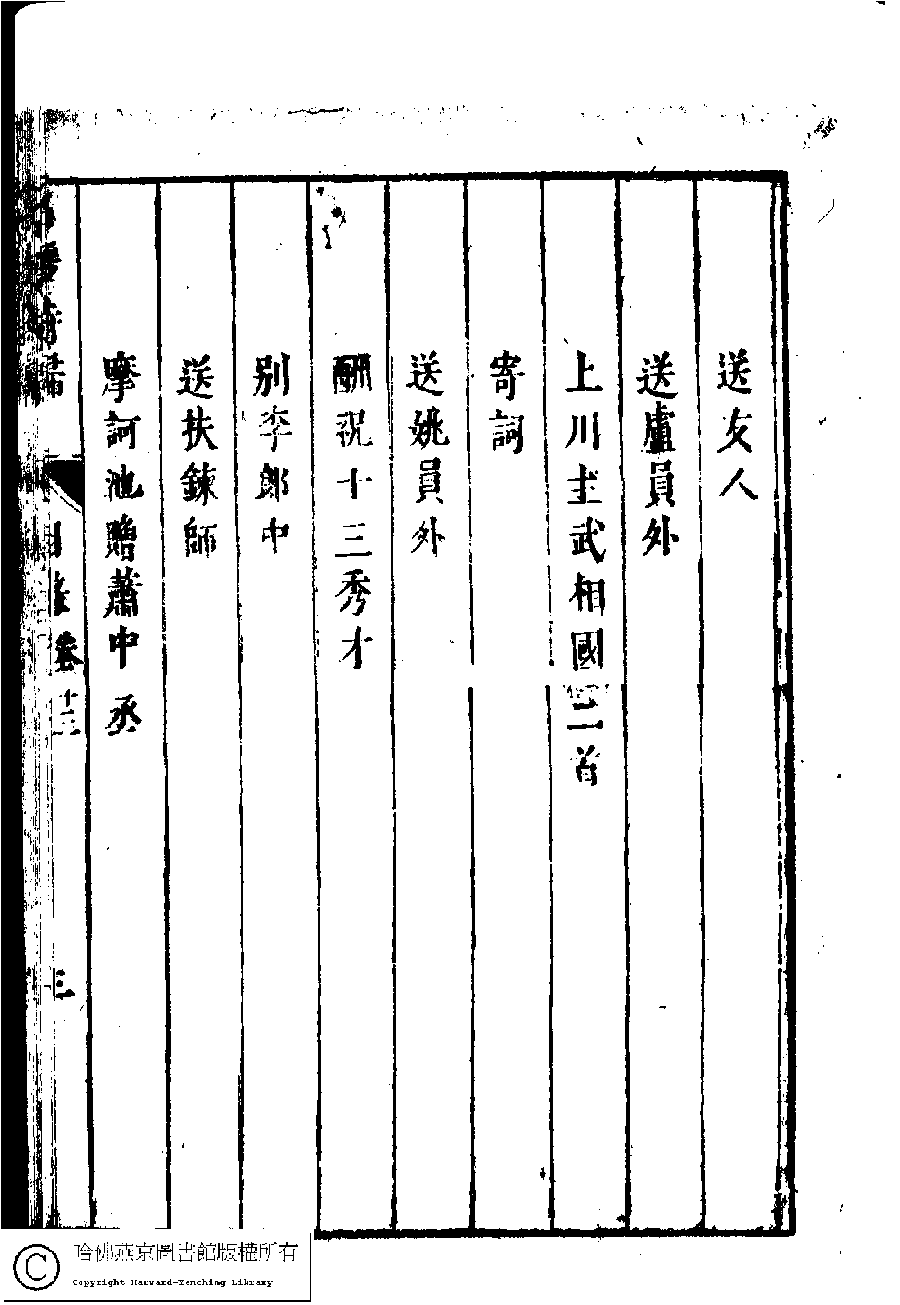 送友人
送盧員外
上川主武相國二首
寄詞
送姚員外
酬祝十三秀才
别李郎中
送扶鍊師
摩訶池贈蕭中丞
名媛詩歸
目錄卷十三
三
哈佛燕京圖書館版權所有
Copyright Harvard-Yenching Library